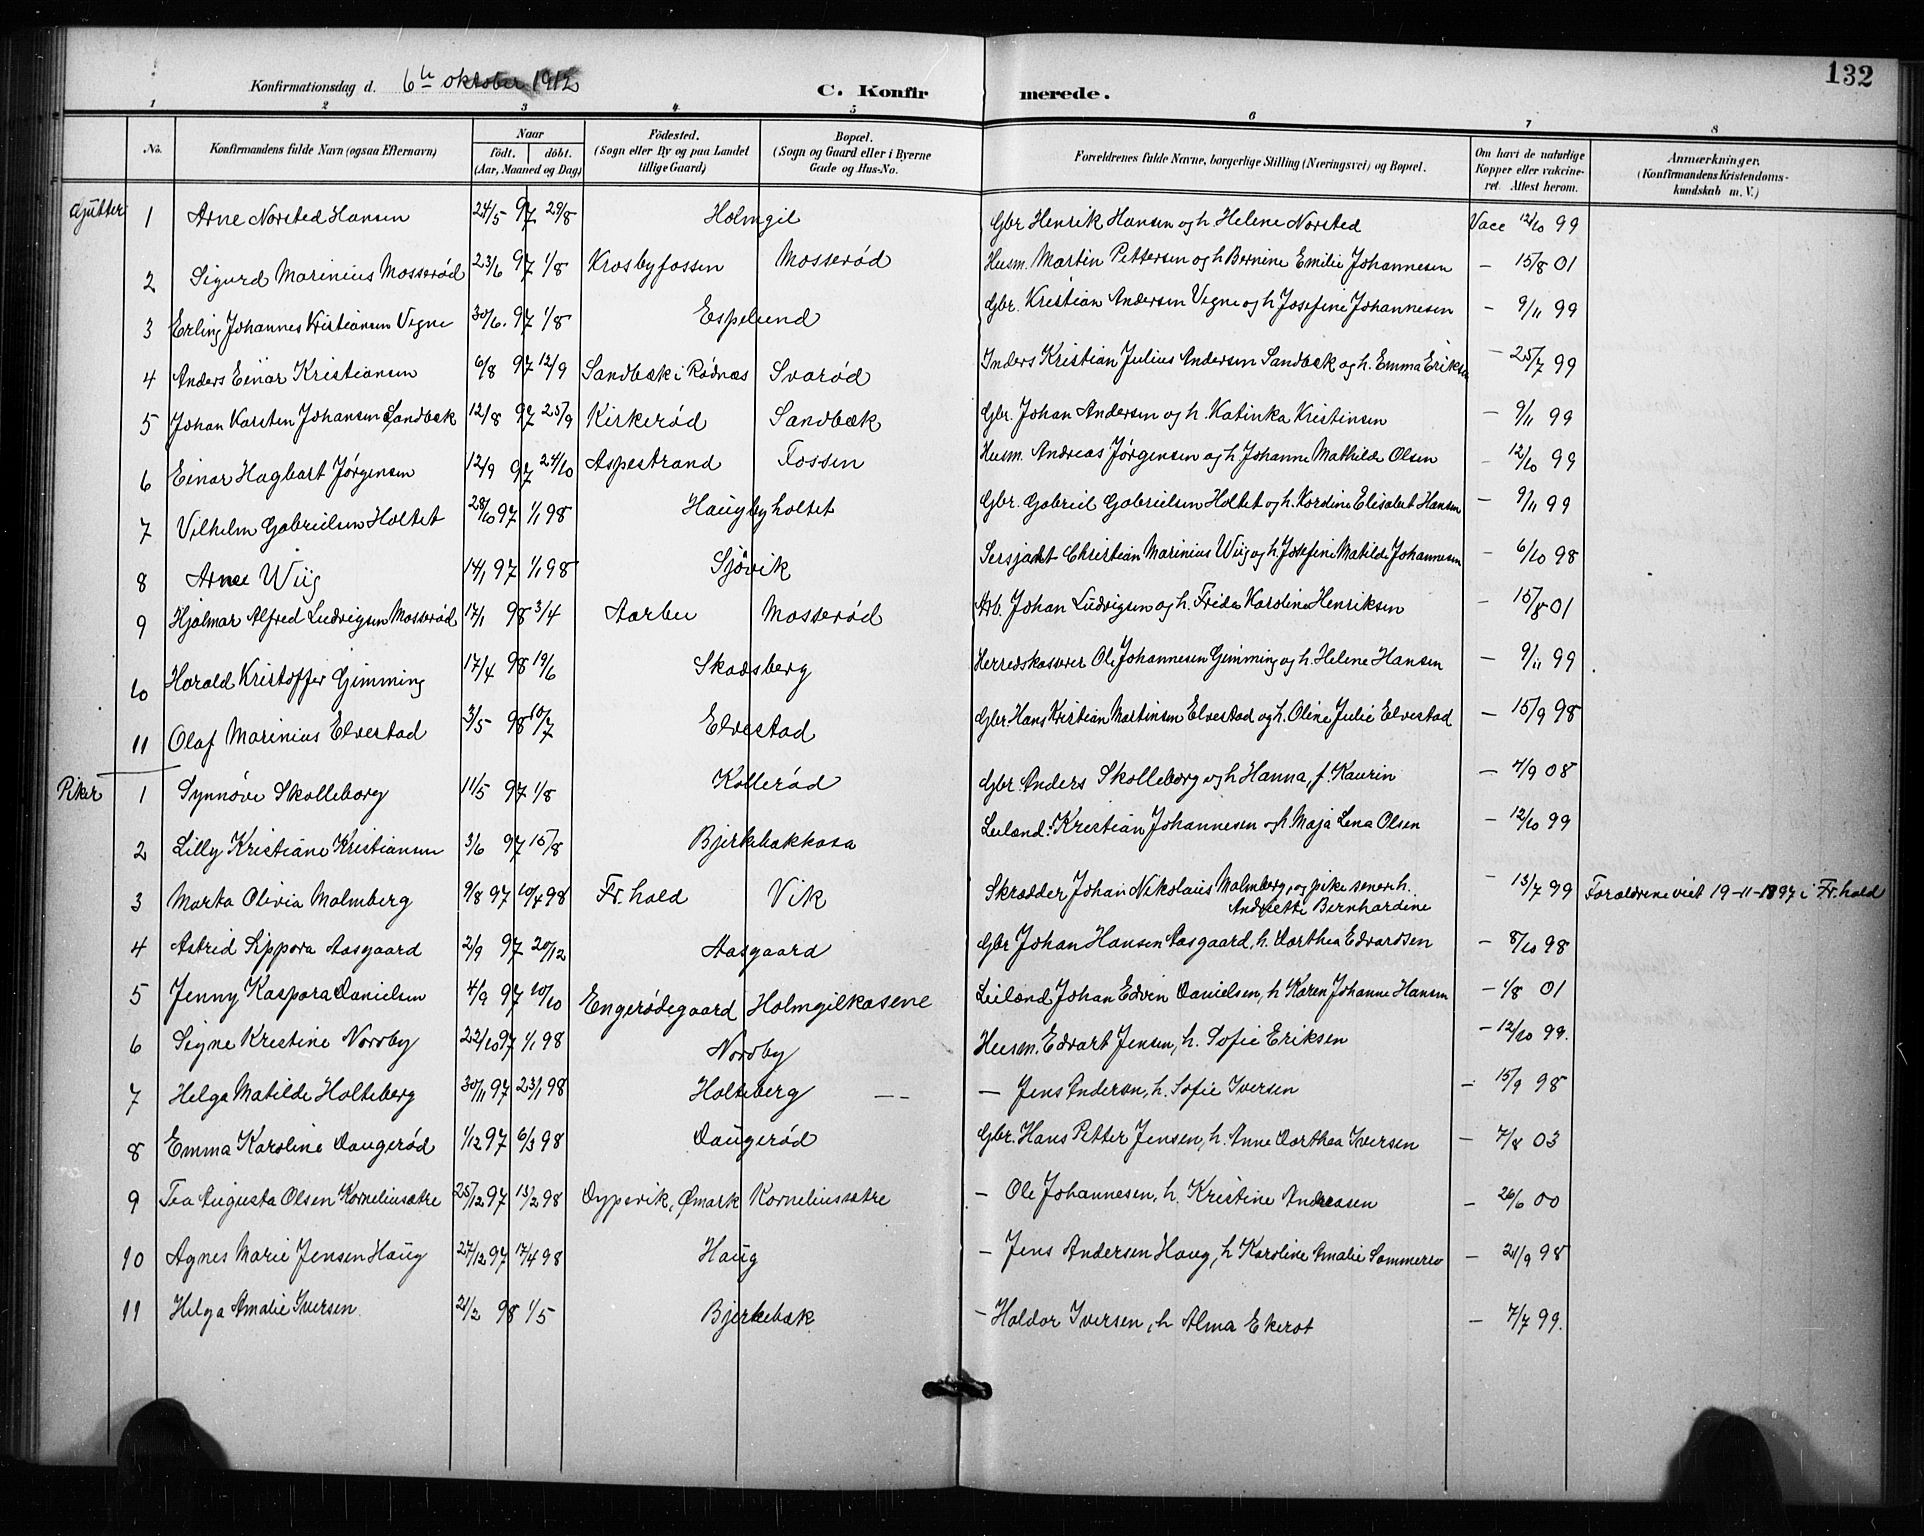 132
Konfirmationsdag d. 6te oktober 1912
C. Konfirmerede.
1 2 3 4 5 6 7 8
No. Konfirmandens fulde Navn (ogsaa Efternavn) Naar födt. döbt. (Aar, Maaned og Dag) Födested. (Sogn eller By og paa Landet tillige Gaard) Bopæl. (Sogn og Gaard eller i Byerne Gade og Hus-No. Forældrenes fulde Navne, borgerlige Stilling (Næringsvei) og Bopæl. Om havt de naturlige Kopper eller vakcineret. Attest herom. Anmærkninger. (Konfirmandens Kristendomskundskab m. V.)
Gutter 1 Arne Norsted Hansen 24/5 97 29/8 Holmgil Gbr Henrik Hansen og h. Helene Norsted Vacc 12/10 99
2 Sigurd Marinius Mosserød 23/6 97 1/8 Krosbyfossen Mosserød Husm. Martin Pettersen og h Bernine Emilie Johannesen — 15/8 01
3 Erling Johannes Kristiansen Vegne 30/6. 97 1/8 Espelund Gbr. Kristian Andersen Vegne og h Josefine Johannesen — 9/11 99
4 Anders Einar Kristiansen 6/8 97 12/9 Sandbæk i Rødnæs Svarød Inders Kristian Julius Andersen Sandbæk og h. Emma Eriksen — 25/7 99
5 Johan Karsten Johansen Sandbæk 12/8 97 25/9 Kirkerød Sandbæk Gbr. Johan Andersen og h. Katinka Kristinsen — 9/11 99
6 Einar Hagbart Jørgensen 12/9 97 24/10 Aspestrand Fossen Husm. Andreas Jørgensen og h Johanne Mathilde Olsen — 12/10 99
7 Vilhelm Gabrielsen Holtet 28/10 97 1/1 98 Haugbyholtet Gbr. Gabriel Gabrielsen Holtet og h. Kordine Elisabet Hansen — 9/11 99
8 Arne Wiig 14/1 97 1/1 98 Sjøvik Sersjant Christian Marinius Wiig og h. Josefine Matilde Johannesen — 6/10 98
9 Hjalmar Alfred Ludvigsen Mosserød 17/1 98 3/4 Aarbu Mosserød Arb. Johan Ludvigsen og h. Frida Karoline Henriksen — 15/8 01
10 Harald Kristoffer Gimming 17/4 98 19/6 Skadsberg Herredskaserer Ole Johannesen Gimming og h. Helene Hansen — 9/11 99
11 Olaf Marinius Elvestad 3/5 98 10/7 Elvestad Gbr. Hans Kristian Martinsen Elvestad og h. Oline Julie Elvestad — 15/9 98
Piker 1 Synnøve Skolleborg 11/5 97 1/8 Kollerød Gbr. Anders Skolleborg og h Hanna, f. Kaurin — 7/9 08
2 Lilly Kristiane Kristiansen 3/6 97 15/8 Bjerkebakkasa Leiland. Kristian Johannesen og h. Maja Lena Olsen — 12/10 99
3 Marta Olivia Malmberg 9/8 97 10/4 98 Fr. hald Vik Skrædder Johan Nikolaus Malmberg, og pike senere h. — 13/7 99 Forældrene viet 19-11-1897 i Fr. hald
Andrette Bernhardine
4 Astrid Sippora Aasgaard 2/9 97 20/12 Aasgaard Gbr Johan Hansen Aasgaard, h. Dorthea Edvardsen — 8/10 98
5 Jenny Kaspara Danielsen 4/9 97 10/10 Engerødegaard Holmgilkasene Leiland Johan Edvin Danielsen, h Karen Johanne Hansen — 1/8 01
6 Signe Kristine Nordby 22/10 97 1/1 98 Nordby Husm. Edvart Jensen, h. Sofie Eriksen — 12/10 99.
7 Helga Matilde Holteberg 30/11 97 23/1 98 Holteberg — — — Jens Andersen, h. Sofie Iversen — 15/9 98
8 Emma Karoline Daugerød 1/12 97 6/3 98 Daugerød Gbr. Hans Petter Jensen, h. Anne Dorthea Iversen — 7/8 03
9 Tea Augusta Olsen Korneliussætre 25/12 97 13/2 98 Dypevik, Ømark Korneliussætre — Ole Johannesen, h. Kristine Andreasen — 26/6 00
10 Agnes Marie Jensen Haug 27/12 97 17/4 98 Haug — Jens Andersen Haug, h Karoline Amalie Sommerro — 21/9 98
11 Helga Amalie Iversen 21/2 98 1/5 Bjerkebæk — Haldor Iversen, h Alma Ekerot — 7/7 99.